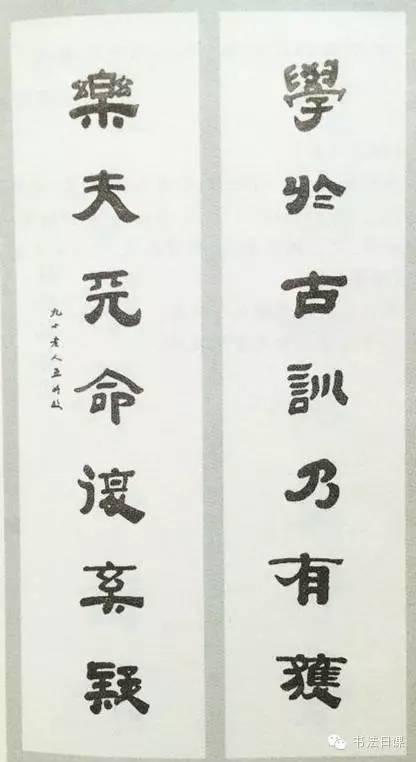 學於古訓乃有獲
樂夫天命復奚疑
九十老人
书法日课